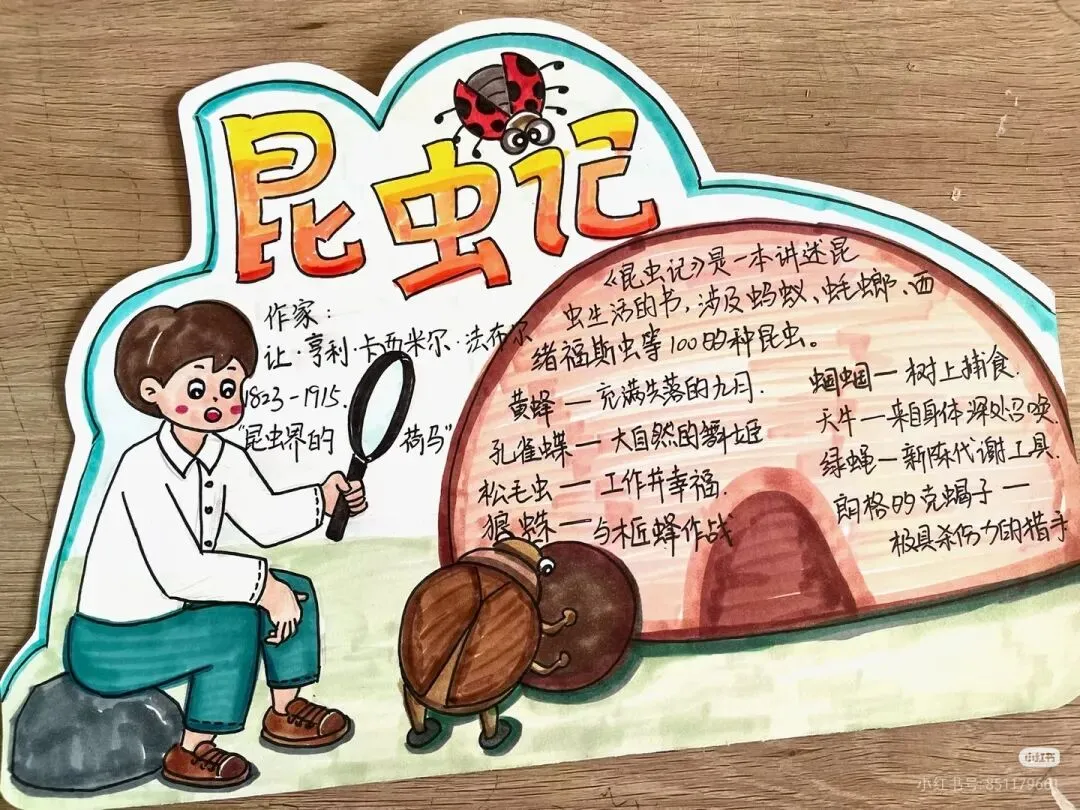 昆虫记
作家：
让·亨利·卡西米尔·法布尔
1823-1915.
"昆虫界的 荷马"
《昆虫记》是一本讲述昆
虫生活的书，涉及蚂蚁、蚝螂、西
绪福斯虫等100的种昆虫。
黄蜂—充满失落的九月.
孔雀蝶—大自然的舞姬
松毛虫—工作并幸福.
狼蛛—与木匠蜂作战
蝈蝈—树上捕食.
天牛—来自身体深处召唤.
绿蝇—新陈代谢工具.
朗格的克蝎子—
极具杀伤力的猎手
小红书
小红书号: 851179661